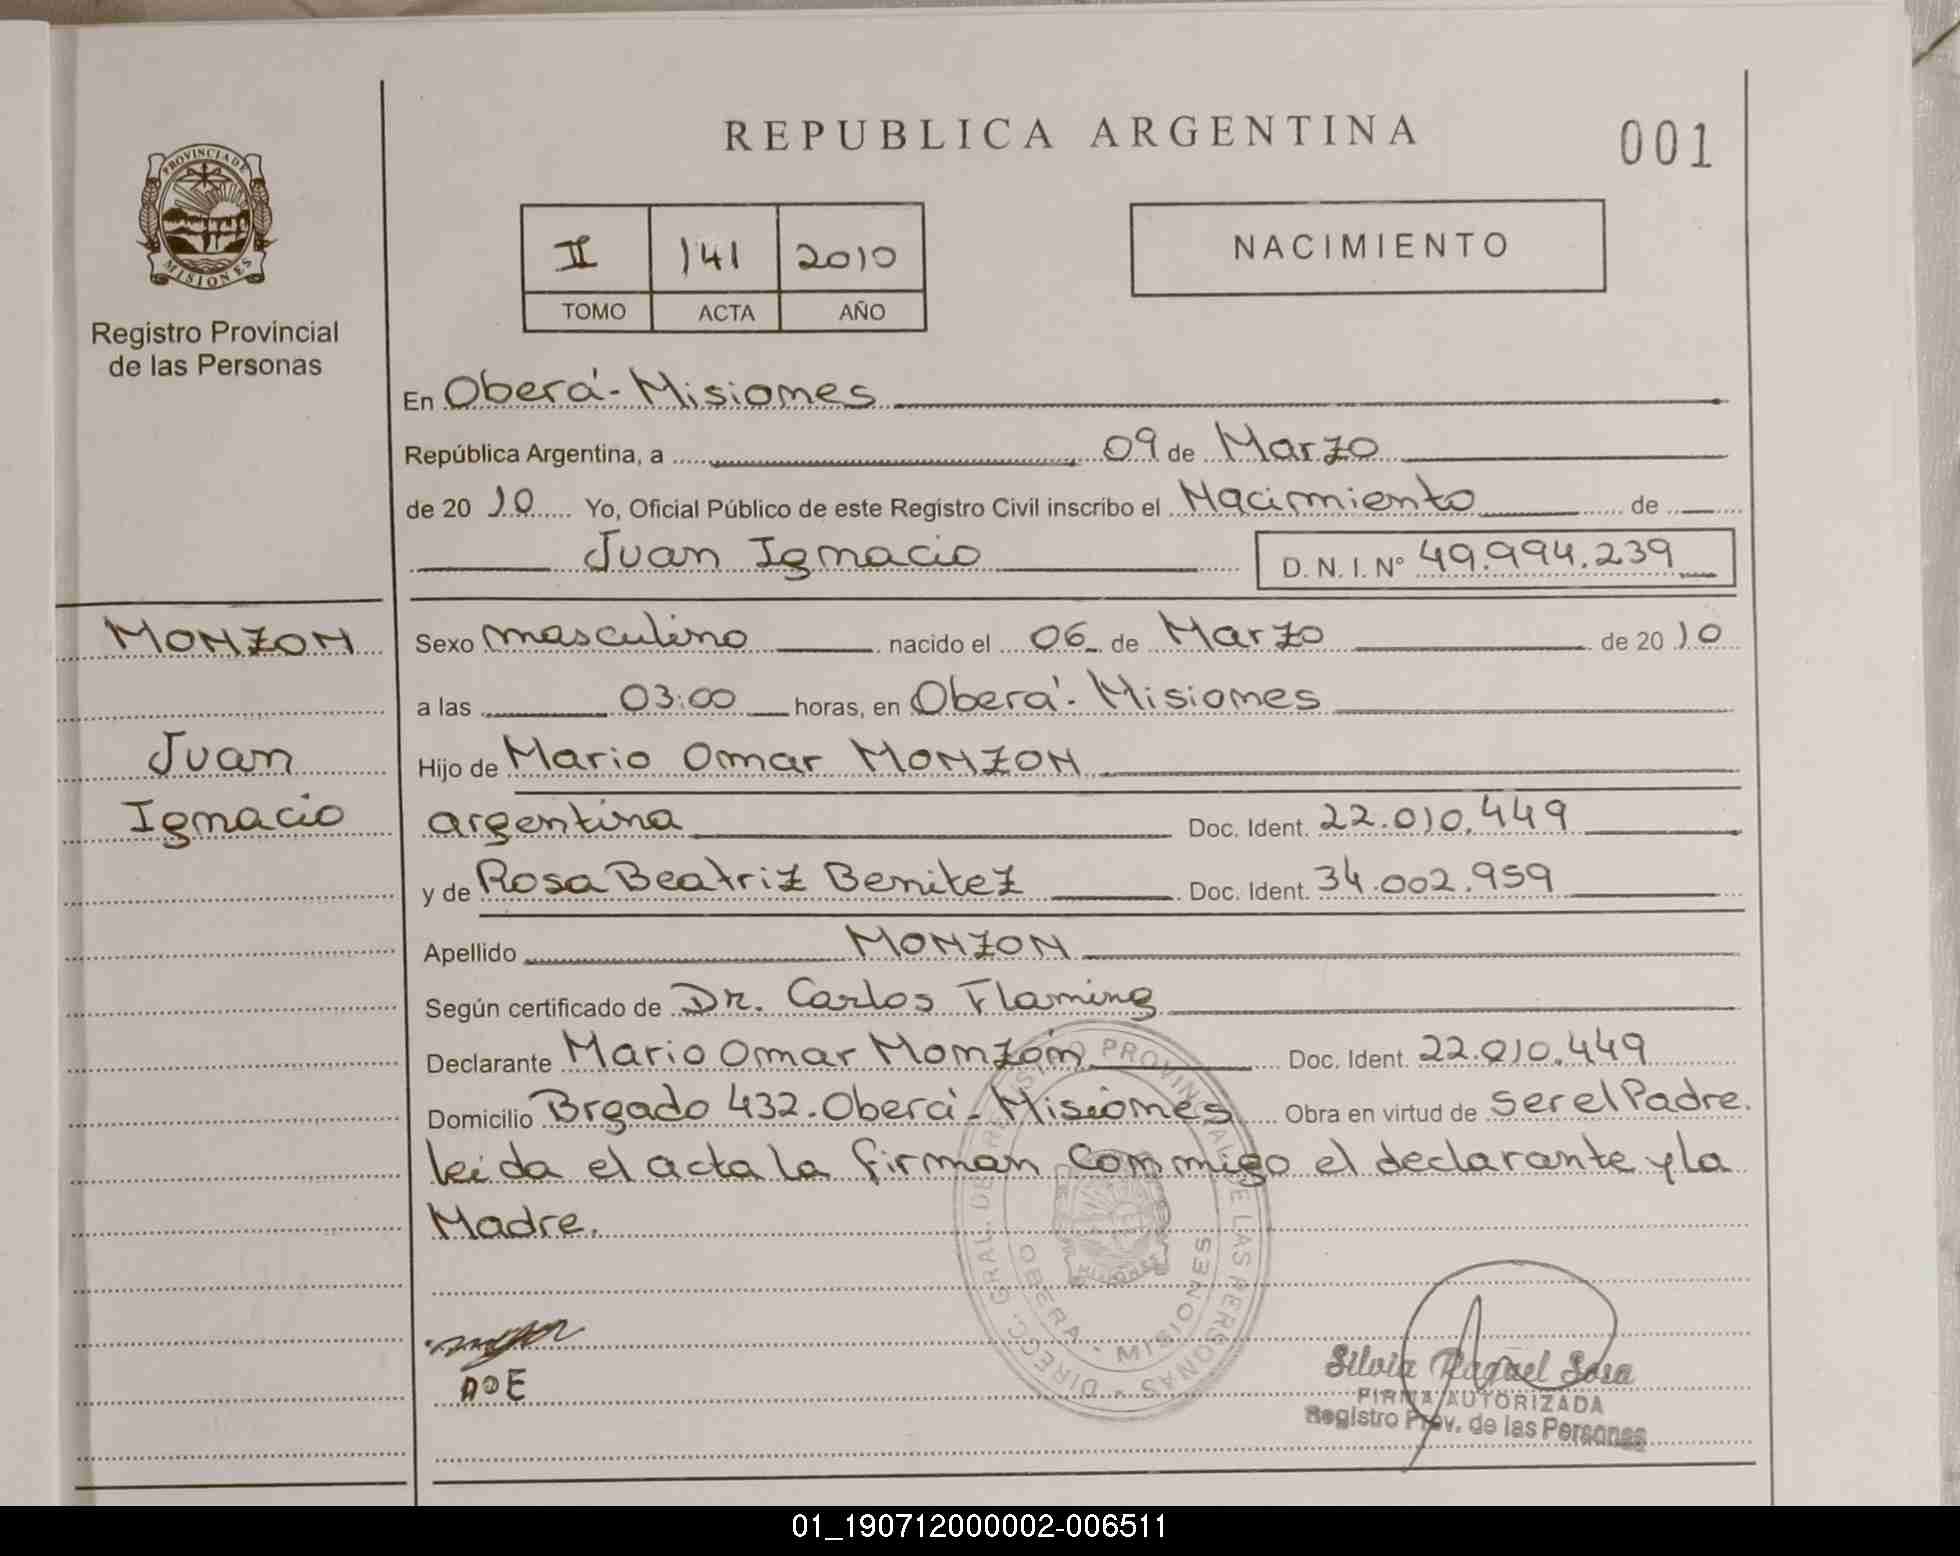 REPUBLICA ARGENTINA
001
PROVINCIA DE MISIONES
Registro Provincial
de las Personas
II 141 2010
TOMO ACTA AÑO
NACIMIENTO
En Oberá - Misiones
República Argentina, a 09 de Marzo
de 20 10 Yo, Oficial Público de este Registro Civil inscribo el Nacimiento de
Juan Ignacio D.N.I. Nº 49.994.239
MONZON
Juan
Ignacio
Sexo masculino nacido el 06 de Marzo de 20 10
a las 03:00 horas, en Oberá - Misiones
Hijo de Mario Omar MONZON
argentina Doc. Ident. 22.010.449
y de Rosa Beatriz Benitez Doc. Ident. 34.002.959
Apellido MONZON
Según certificado de Dr. Carlos Flaming
Declarante Mario Omar Monzón Doc. Ident. 22.010.449
Domicilio Brgado 432. Oberá - Misiones Obra en virtud de ser el Padre.
leida el acta la firman conmigo el declarante y la
Madre.
DIREC. GRAL. DE REGISTRO PROVINCIAL DE LAS PERSONAS
OBERA - MISIONES
Silvia Raquel Sosa
FIRMA AUTORIZADA
Registro Prov. de las Personas
01_190712000002-006511